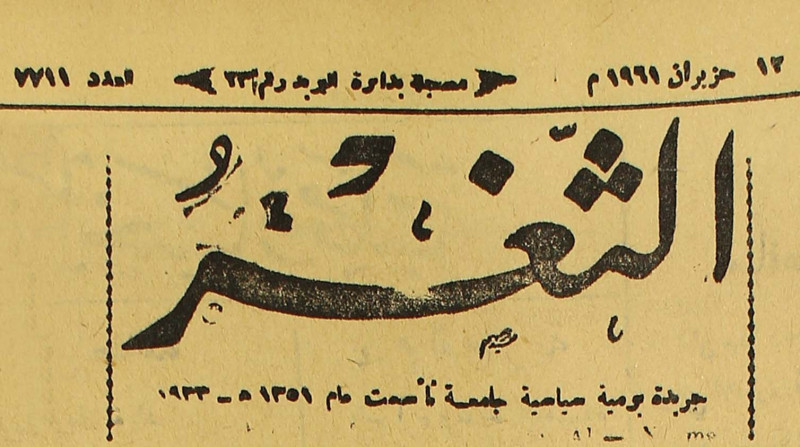 ١٣ حزيران ١٩٦١ م مسجلة بدائرة البريد رقم ٢٣ العدد ٧٧١١
الثّغر
جريدة يومية سياسية جامعة تأسست عام ١٣٥١ هـ ــ ١٩٣٣